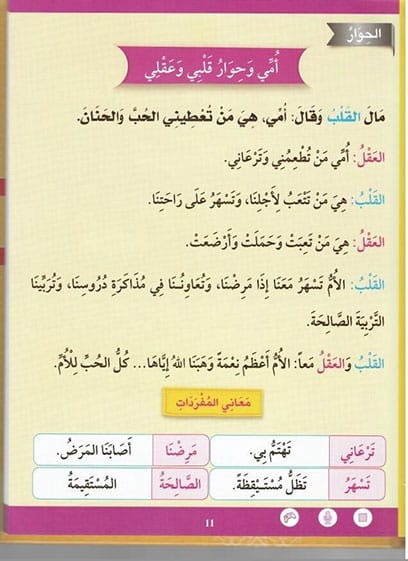 الحِوَارُ
أُمِّي وَحِوَارُ قَلْبِي وَعَقْلِي
مَالَ القَلْبُ وَقَالَ: أُمِّي، هِيَ مَنْ تُعْطِينِي الحُبَّ وَالحَنَانَ.
العَقْلُ: أُمِّي مَنْ تُطْعِمُنِي وَتَرْعَانِي.
القَلْبُ: هِيَ مَنْ تَتْعَبُ لِأَجْلِنَا، وَتَسْهَرُ عَلَى رَاحَتِنَا.
العَقْلُ: هِيَ مَنْ تَعِبَتْ وَحَمَلَتْ وَأَرْضَعَتْ.
القَلْبُ: الأُمُّ تَسْهَرُ مَعَنَا إِذَا مَرِضْنَا، وَتُعَاوِنُنَا فِي مُذَاكَرَةِ دُرُوسِنَا، وَتُرَبِّينَا
التَّرْبِيَةَ الصَّالِحَةَ.
القَلْبُ وَالعَقْلُ مَعاً: الأُمُّ أَعْظَمُ نِعْمَةً وَهَبَنَا اللهُ إِيَّاهَا... كُلُّ الحُبِّ لِلْأُمِّ.
مَعَانِي المُفْرَدَاتِ
تَرْعَانِي تَهْتَمُّ بِي. مَرِضْنَا أَصَابَنَا المَرَضُ.
تَسْهَرُ تَظَلُّ مُسْتَيْقِظَةً. الصَّالِحَةُ المُسْتَقِيمَةُ
11